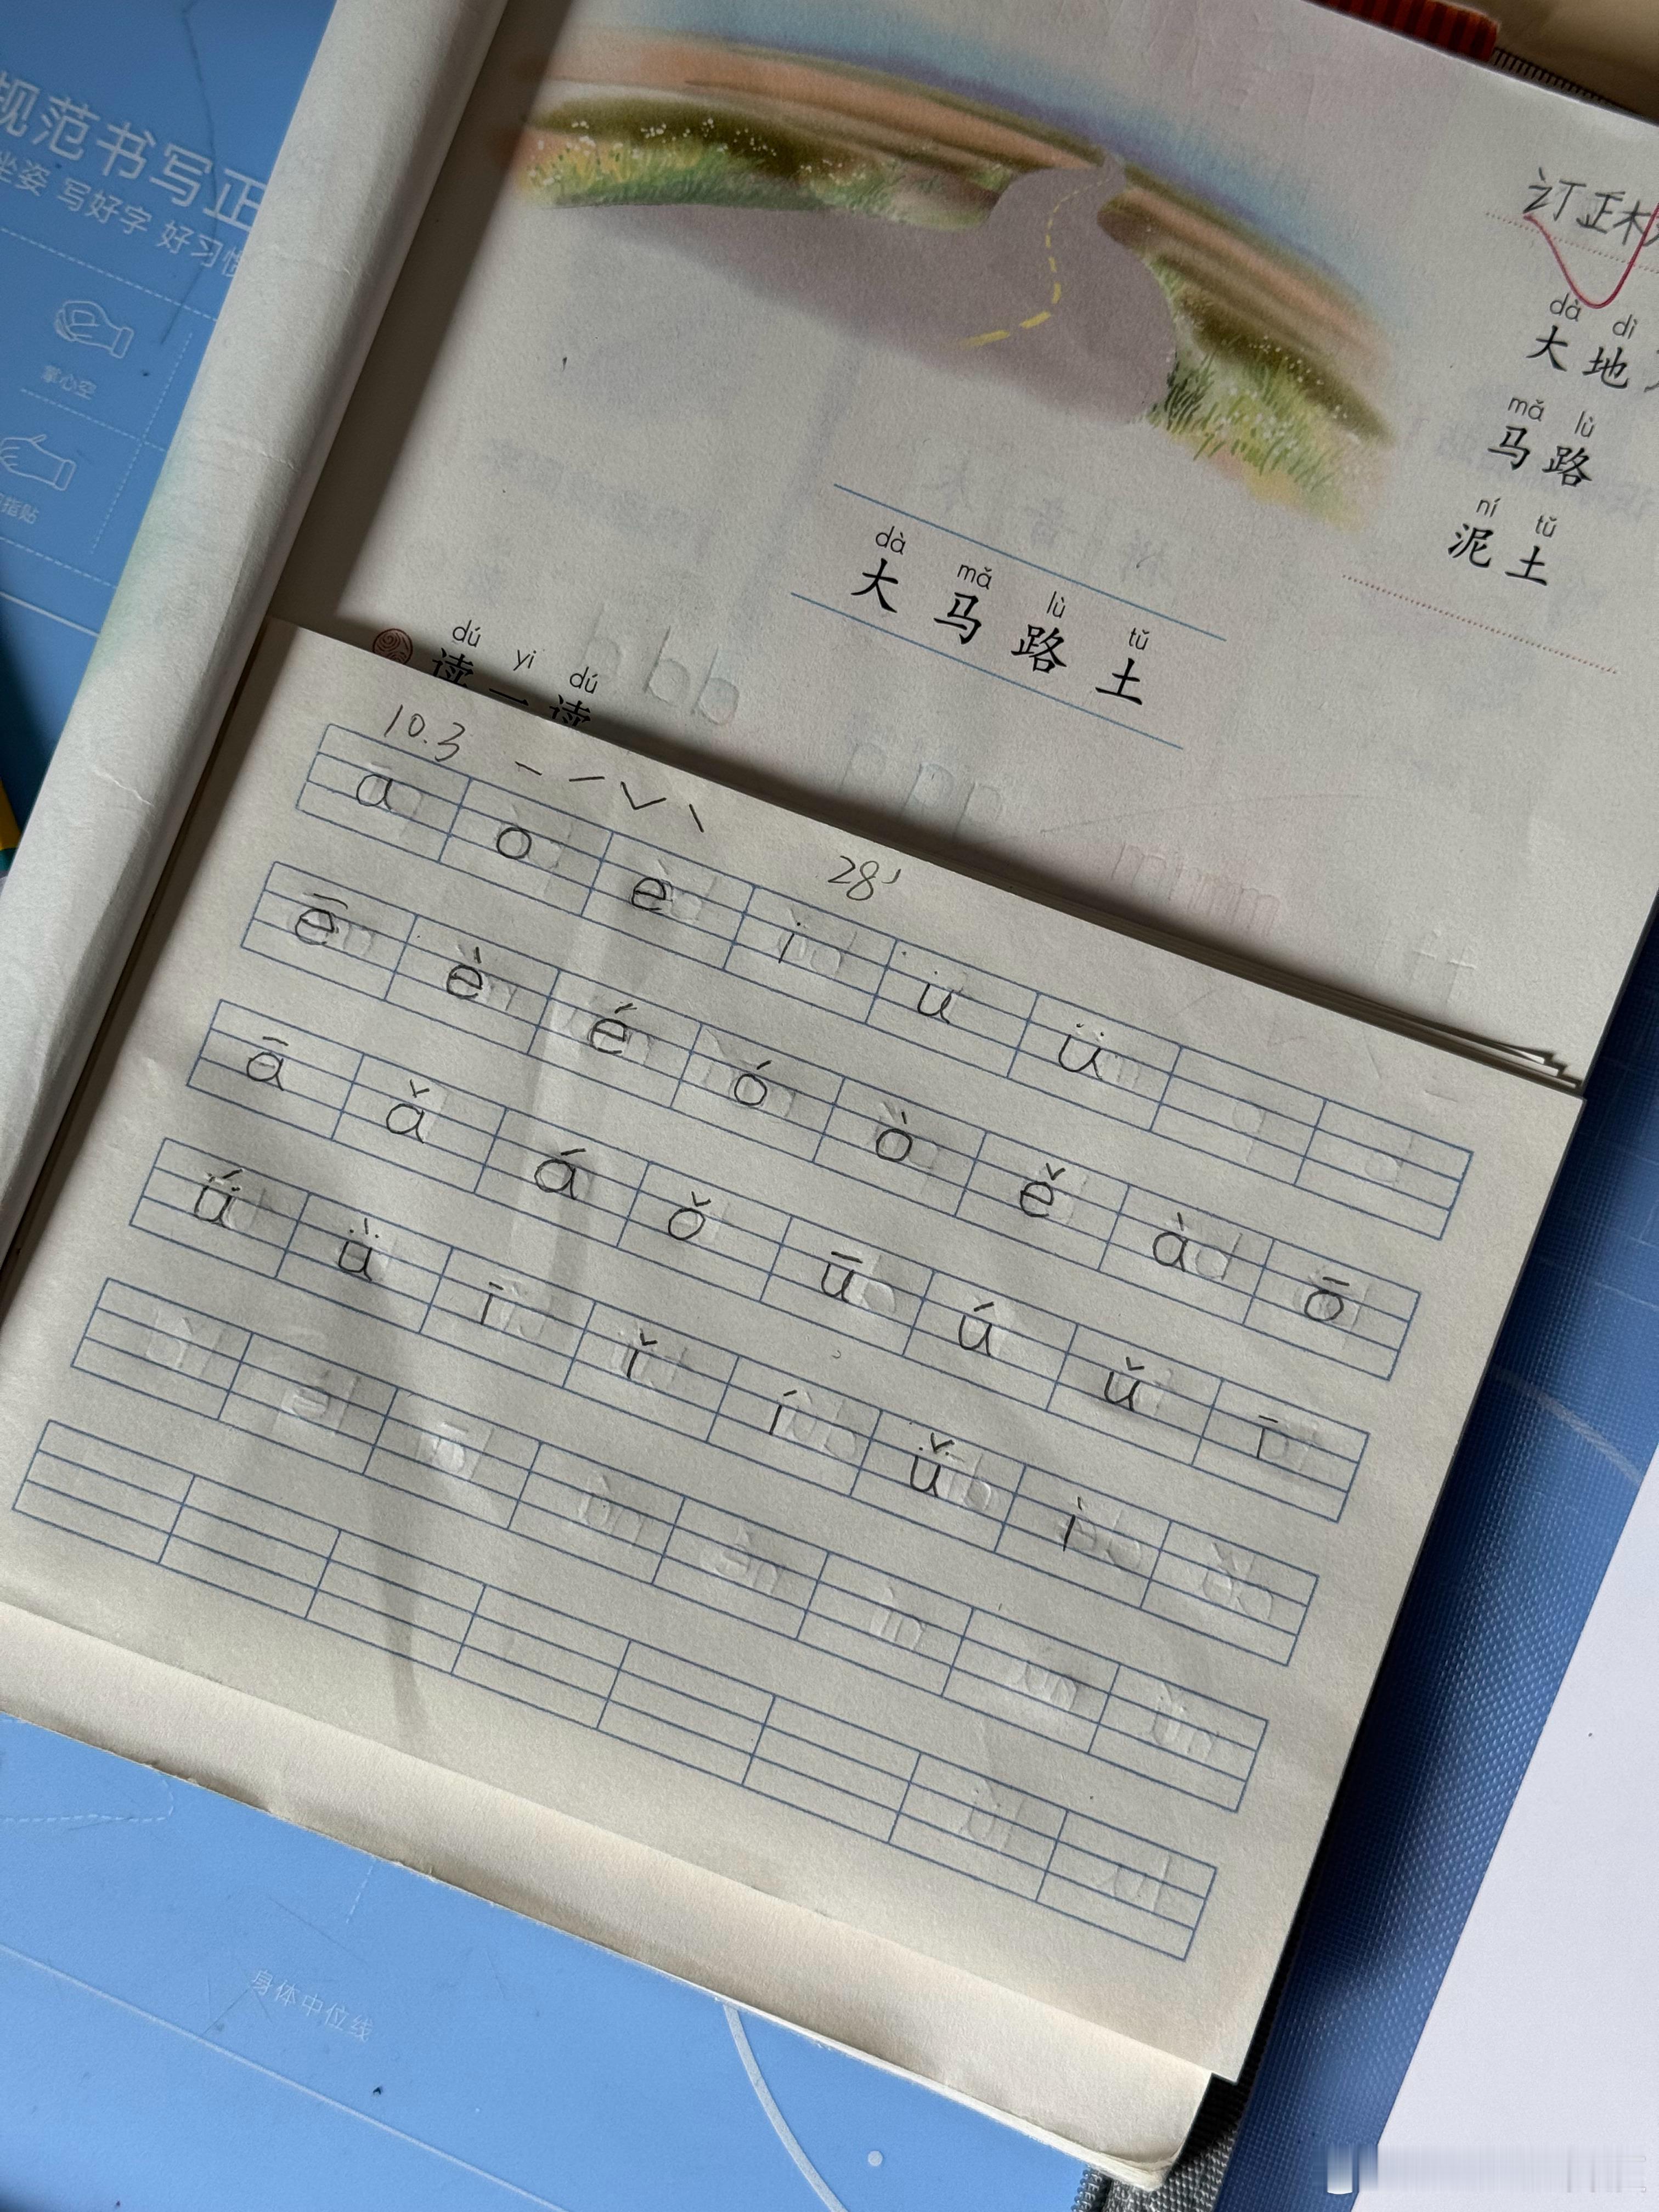 规范书写正
坐姿 写好字 好习惯
掌心空
指贴
订正
dà dì
大地
mǎ lù
马路
ní tǔ
泥土
dà mǎ lù tǔ
大马路土
dú yi dú
读一读
10.3 ˉ ˊ ˇ ˋ
28'
ā o e i u ü
ē è é ó ò ě à ō
ā ǎ á ǒ ū ú ǔ ī
ǘ ǜ ī ǐ í ǚ ì
身体中位线